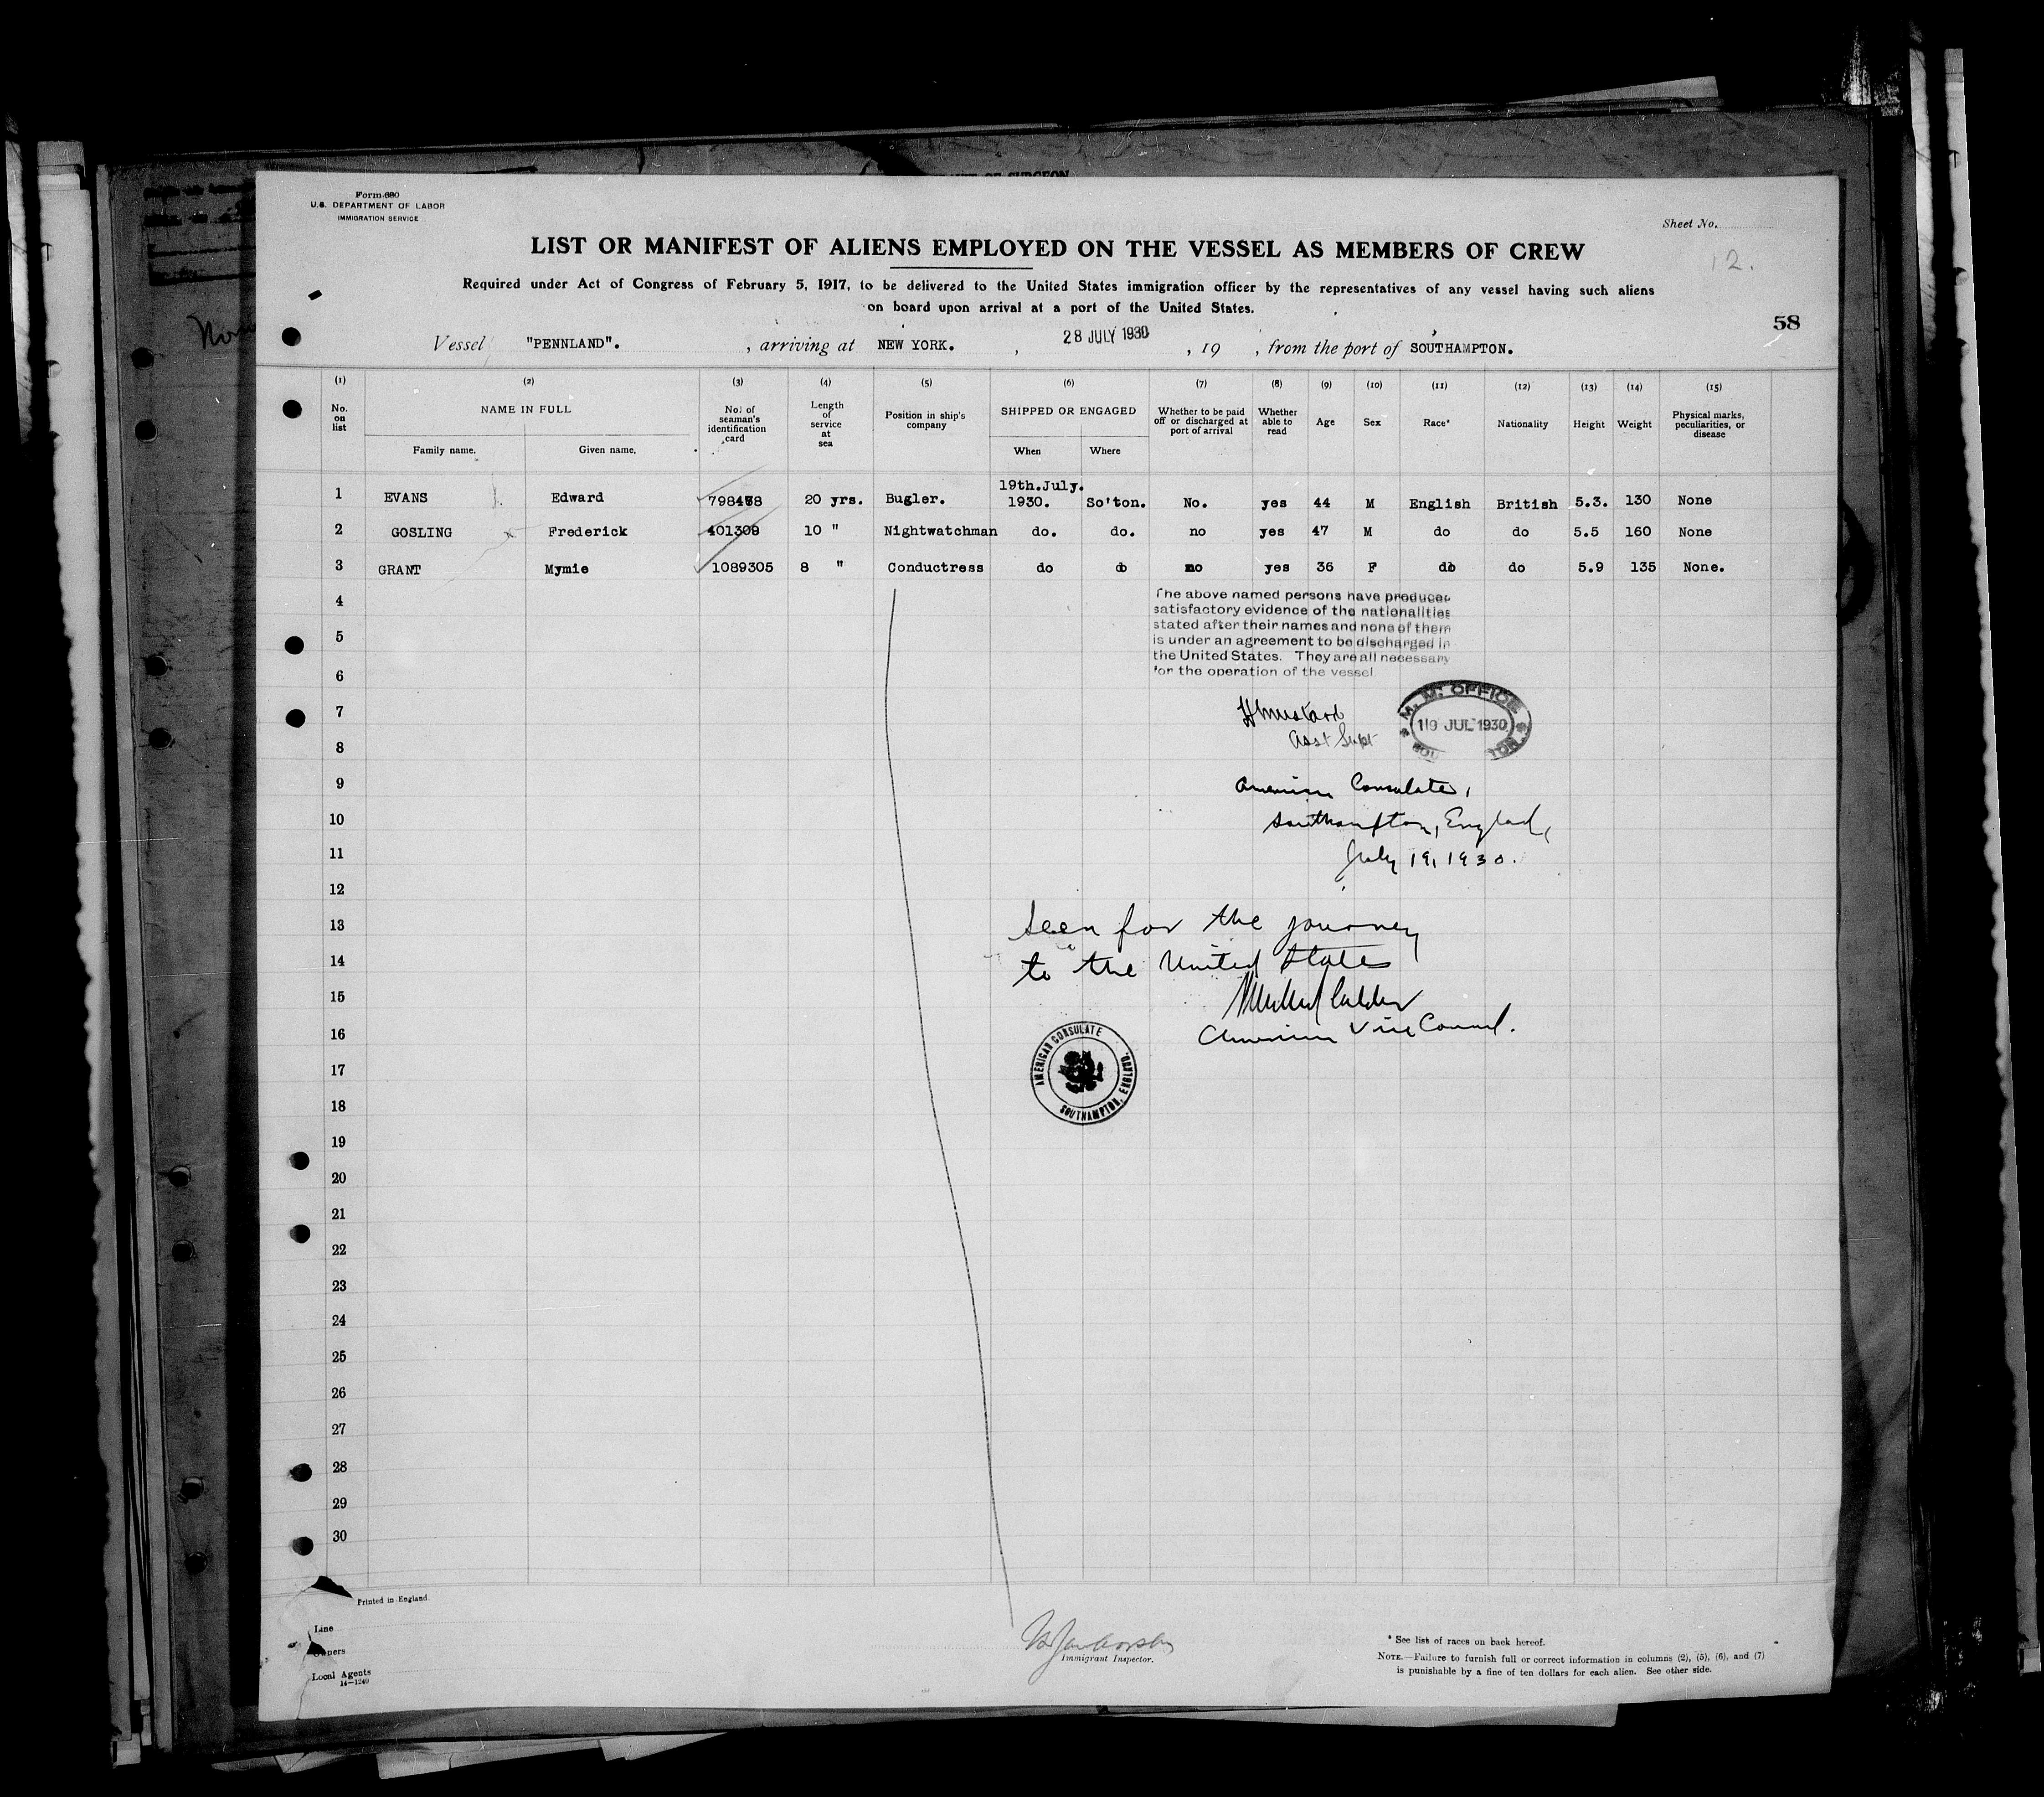 Form 680
U.S. DEPARTMENT OF LABOR
IMMIGRATION SERVICE
Sheet No.
LIST OR MANIFEST OF ALIENS EMPLOYED ON THE VESSEL AS MEMBERS OF CREW
12.
Required under Act of Congress of February 5, 1917, to be delivered to the United States immigration officer by the representatives of any vessel having such aliens
on board upon arrival at a port of the United States.
58
Vessel "PENNLAND". , arriving at NEW YORK. , 28 JULY 1930 , 19 , from the port of SOUTHAMPTON.
(1) (2) (3) (4) (5) (6) (7) (8) (9) (10) (11) (12) (13) (14) (15)
No. on list NAME IN FULL Family name. Given name. No. of seaman's identification card Length of service at sea Position in ship's company SHIPPED OR ENGAGED When Where Whether to be paid off or discharged at port of arrival Whether able to read Age Sex Race* Nationality Height Weight Physical marks, peculiarities, or disease
19th.July.
1 EVANS Edward 20 yrs. Bugler. 1930. So'ton. No. yes 44 M English British 5.3. 130 None
2 GOSLING Frederick 401308 10 " Nightwatchman do. do. no yes 47 M do do 5.5 160 None
3 GRANT Mymie 1089305 8 " Conductress do do no yes 36 F do do 5.9 135 None.
4
5
6
7
8
9
10
11
12
13
14
15
16
17
18
19
20
21
22
23
24
25
26
27
28
29
30
The above named persons have produced
satisfactory evidence of the nationalities
stated after their names and none of them
is under an agreement to be discharged in
the United States. They are all necessary
for the operation of the vessel
Asst Supt
M. M. OFFICE
19 JUL 1930
American Consulate,
Southampton, England,
July 19, 1930.
Seen for the journey
to the United States
American Vice Consul.
AMERICAN CONSULATE
SOUTHAMPTON, ENGLAND.
Printed in England.
Line
Owners
Local Agents
14—1240
Immigrant Inspector.
* See list of races on back hereof.
NOTE.—Failure to furnish full or correct information in columns (2), (5), (6), and (7)
is punishable by a fine of ten dollars for each alien. See other side.